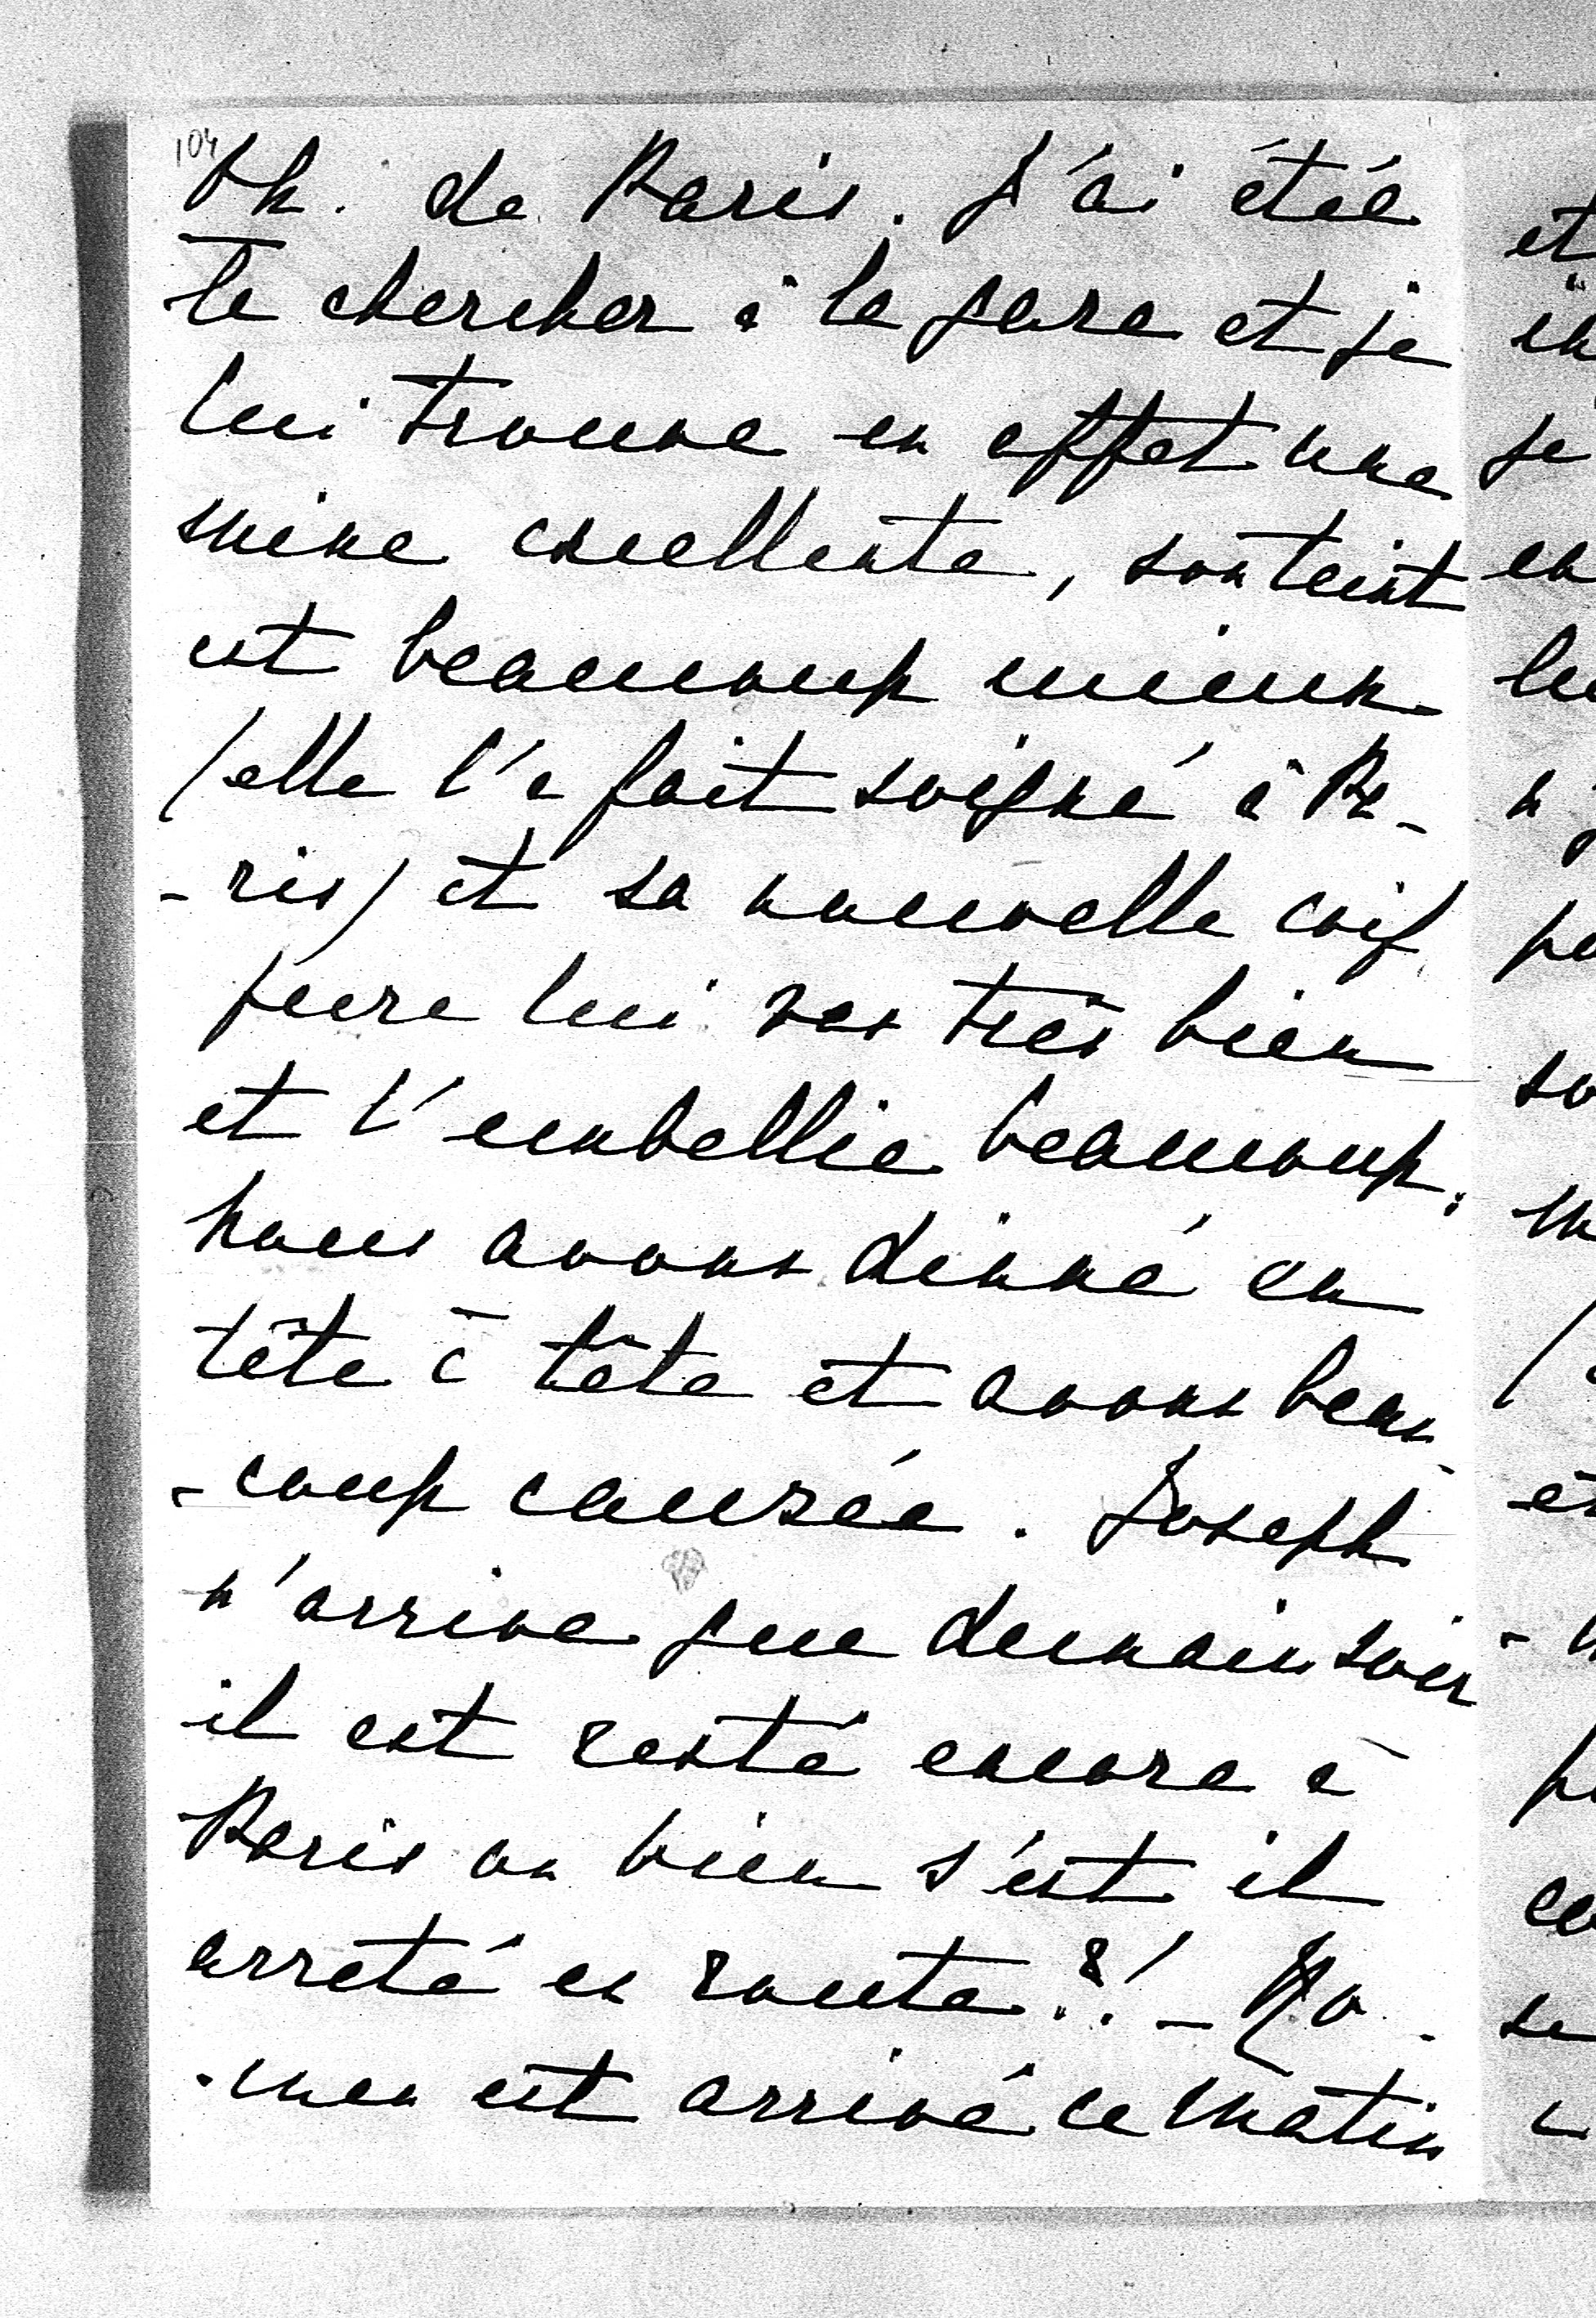 104
Th. de Paris. J'ai étée
te chercher à la gare et je
lui trouve en effet une
mine excellente, son teint
est beaucoup mieux
(elle l'a fait soigné à Pa-
-ris) et sa nouvelle coif
fure lui vas très bien
et l'embellie beaucoup.
nous avons dinné en
tête à tête et avons beau
-coup causée. Joseph
n'arrive que demain soir
il est resté encore à
Paris ou bien s'est il
arreté en route?! - Ro-
-men est arrivé ce matin